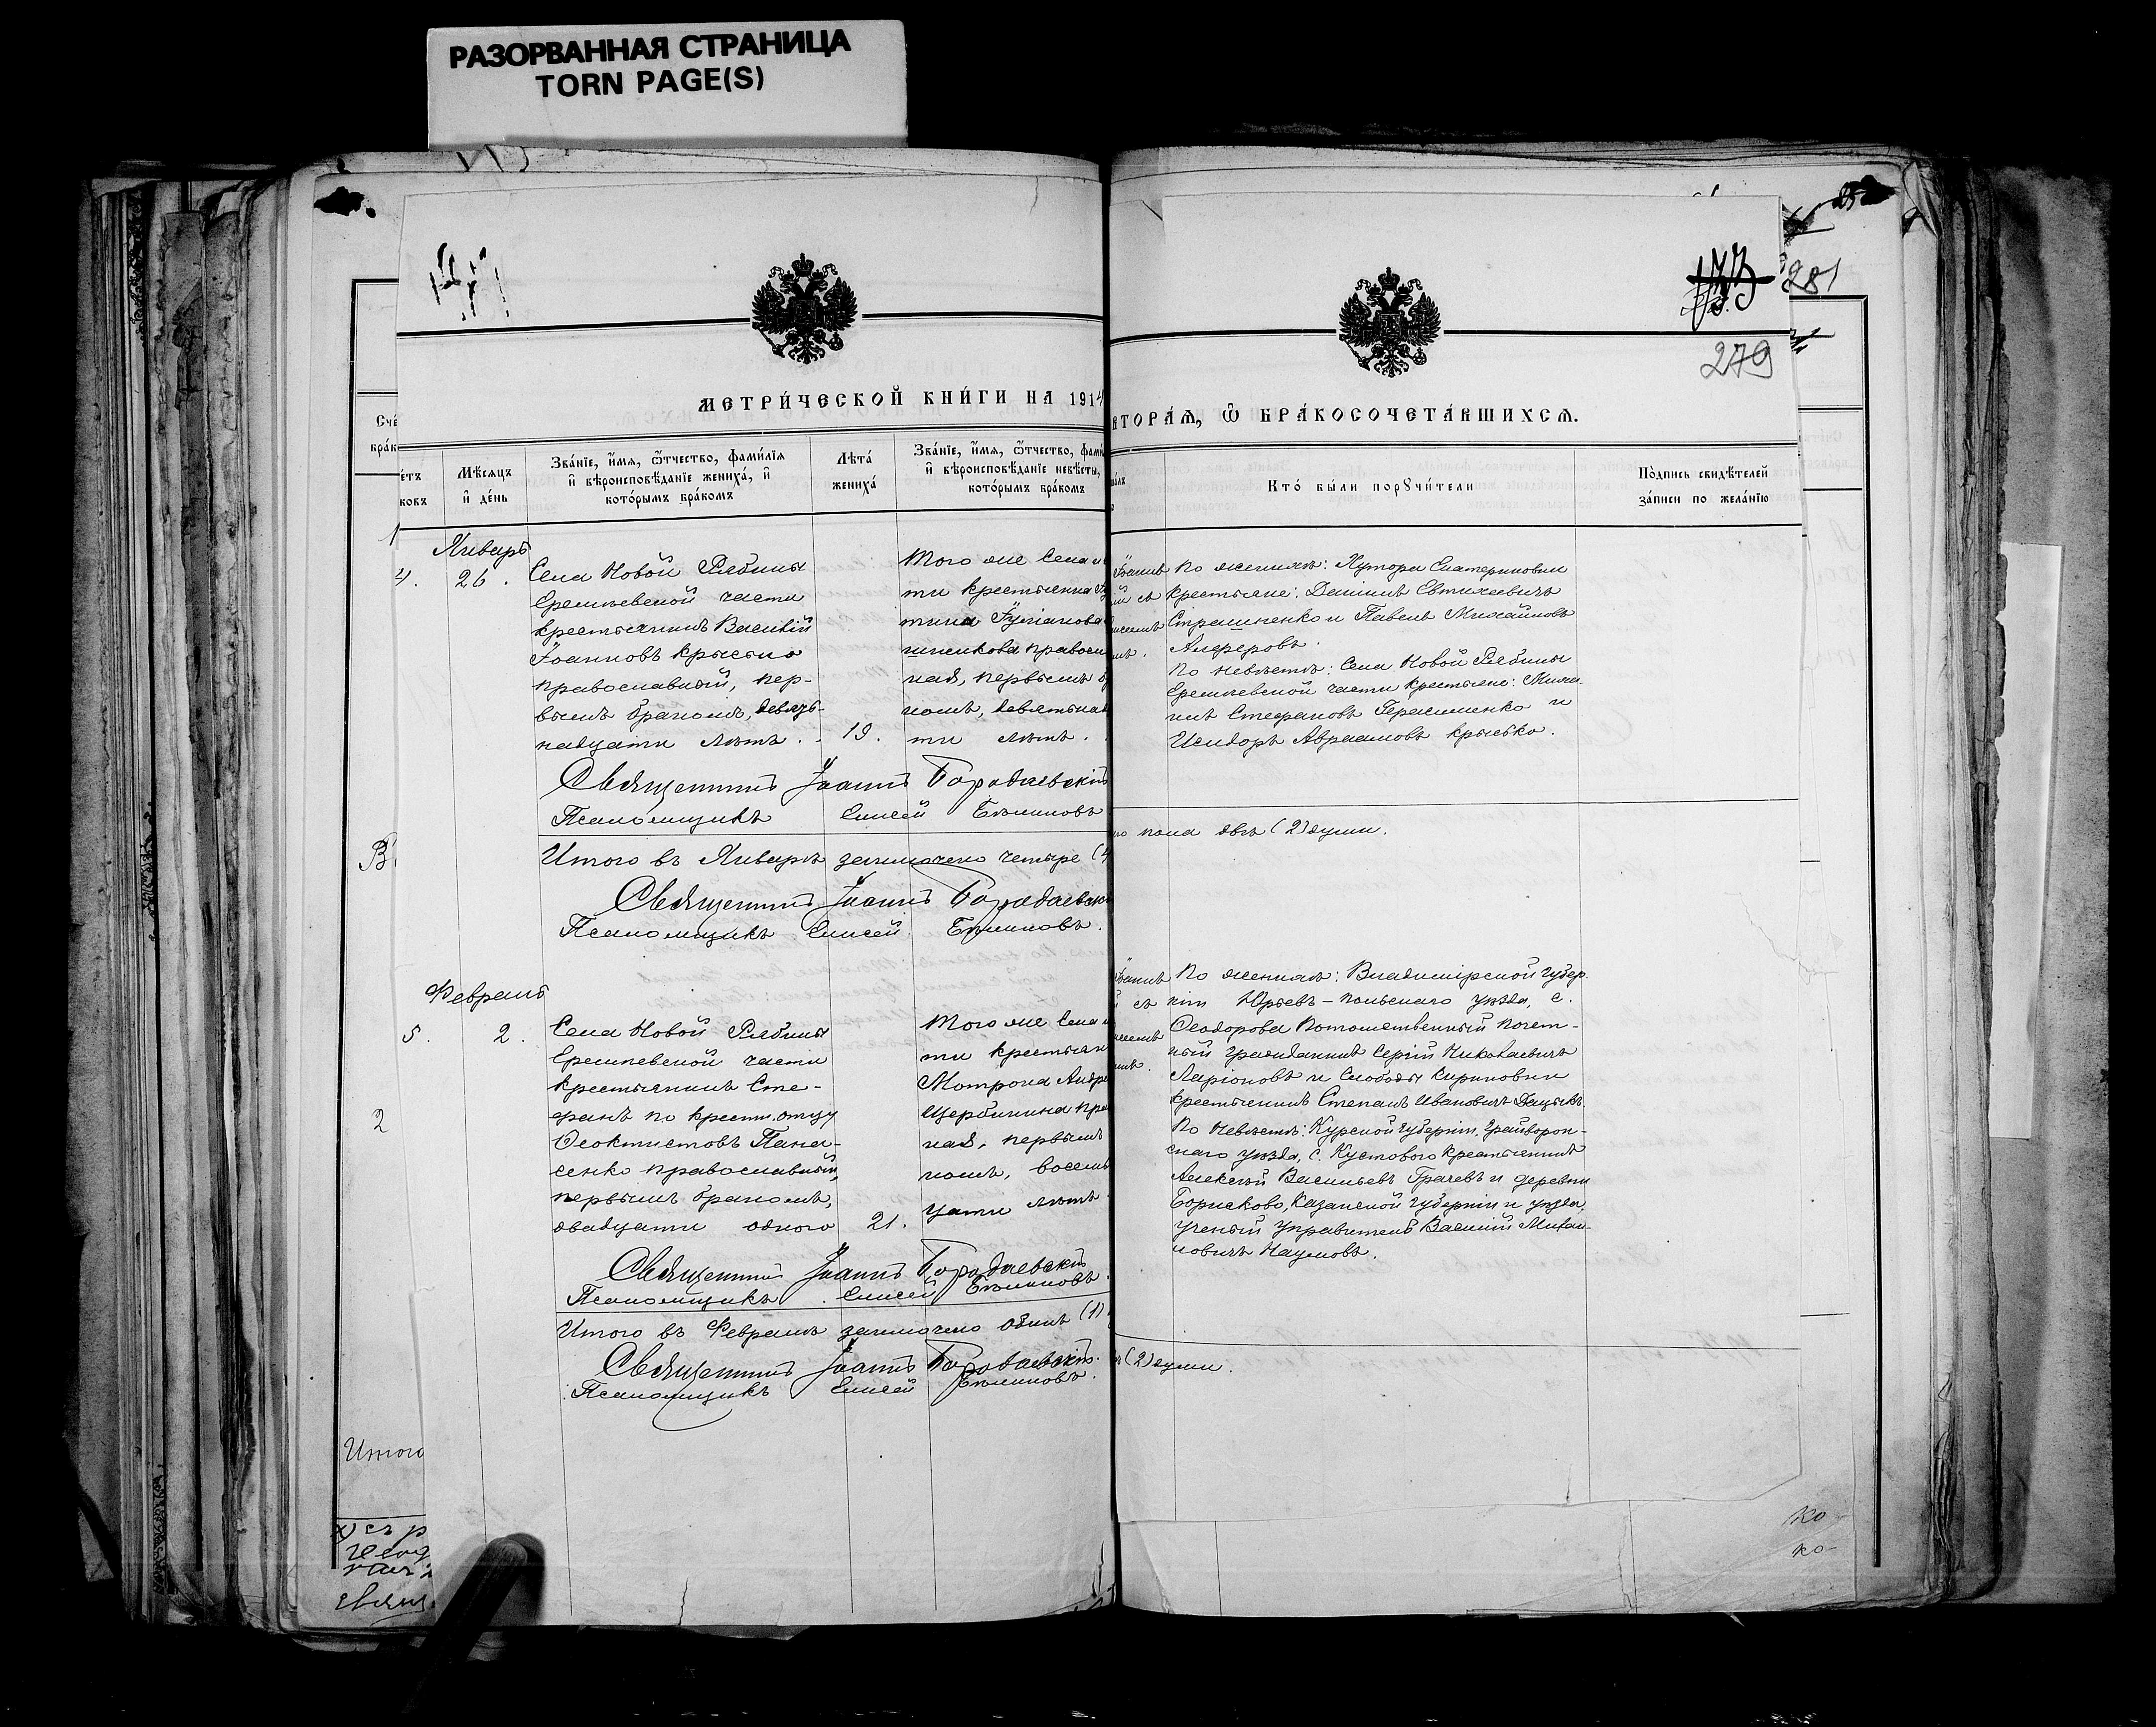 РАЗОРВАННАЯ СТРАНИЦА
TORN PAGE(S)
МЕТРИ́ЧЕСКОЙ КНИ́ГИ НА 1914
Счё
бра́к
етъ
ковъ
Мѣ́сяцъ
и҆ де́нь
Зва́нїе, и҆́мя, ѻ҆́тчество, фами́лїя
и҆ вѣроисповѣ́данїе жениха́, и҆
кото́рымъ бра́комъ
Лѣ́та
жениха́
Зва́нїе, и҆́мя, ѻ҆́тчество, фами
и҆ вѣроисповѣ́данїе невѣ́сты,
кото́рымъ бра́комъ
Январь
4. 26.
Села Новой Рябины
Еремѣевской части
крестьянинъ Василій
Іоанновъ Крысько
православный, пер-
вымъ бракомъ, девят-
надцати лѣтъ.
19.
Того же Села и
ти крестьянка
Гуріанова
шненкова правосл
ная, первымъ б
комъ, девятнад
ти лѣтъ.
Священникъ Іоаннъ Бородаевскій
Псаломщикъ Елисей
Итого въ Январѣ заключено четыре (4
Священникъ Іоаннъ Бородаевск
Псаломщикъ Елисей
Февраль
5. 2.
Села Новой Рябины
Еремѣевской части
крестьянинъ Сте-
фанъ по крестн. отцу
Ѳеоктистовъ Пана-
сенко православный,
первымъ бракомъ,
двадцати одного
21.
Того же Села и
ти крестьян
Мотрона Андре
Щербинина пра
ная, первымъ
комъ, восемн
цати лѣтъ
Священникъ Іоаннъ Бородаевскій
Псаломщикъ Елисей
Итого въ Февралѣ заключено одинъ (1)
Священникъ Іоаннъ Бородаевскій.
Псаломщикъ Елисей
2
Итого
281
279
ВТОРА́Я, Ѡ҆ БРАКОСОЧЕТА́ВШИХСЯ.
Кто̀ бы́ли порꙋчи́тели
По́дпись свидѣ́телей
за́писи по жела́нїю
По женихѣ: Хутора Екатериновки
крестьяне: Даніилъ Евтихіевичъ
Страшненко и Павелъ Михайловъ
Алферовъ.
По невѣстѣ: Села Новой Рябины
Еремѣевской части крестьяне: Миха-
илъ Стефановъ Герасименко и
Исидоръ Авраамовъ Крысько.
пола двѣ (2) души.
По женихѣ: Владимірской губер-
ніи Юрьевъ-польскаго уѣзда, с.
Ѳеодорова Потомственный почет-
ный гражданинъ Сергій Николаевичъ
Ларіоновъ и Слободы Кириковки
крестьянинъ Степанъ Ивановичъ Дацыкъ.
По невѣстѣ: Курской губерніи, Грайворон-
скаго уѣзда, с. Кустового крестьянинъ
Алексѣй Васильевъ Грачевъ и деревни
Борисково, Казанской губерніи и уѣзда,
ученый управитель Василій Михаи-
ловичъ Наумовъ.
(2) души.